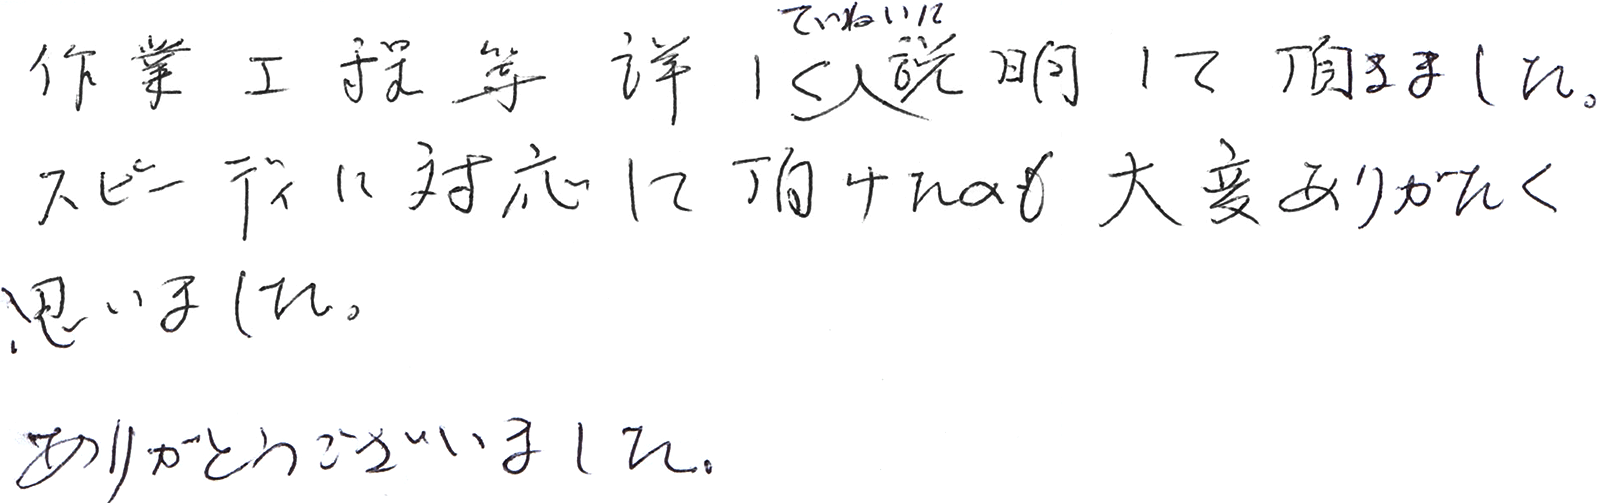 作業工程等詳しくていねいに説明して頂きました。
スピーディに対応して頂けたのも大変ありがたく
思いました。
ありがとうございました。